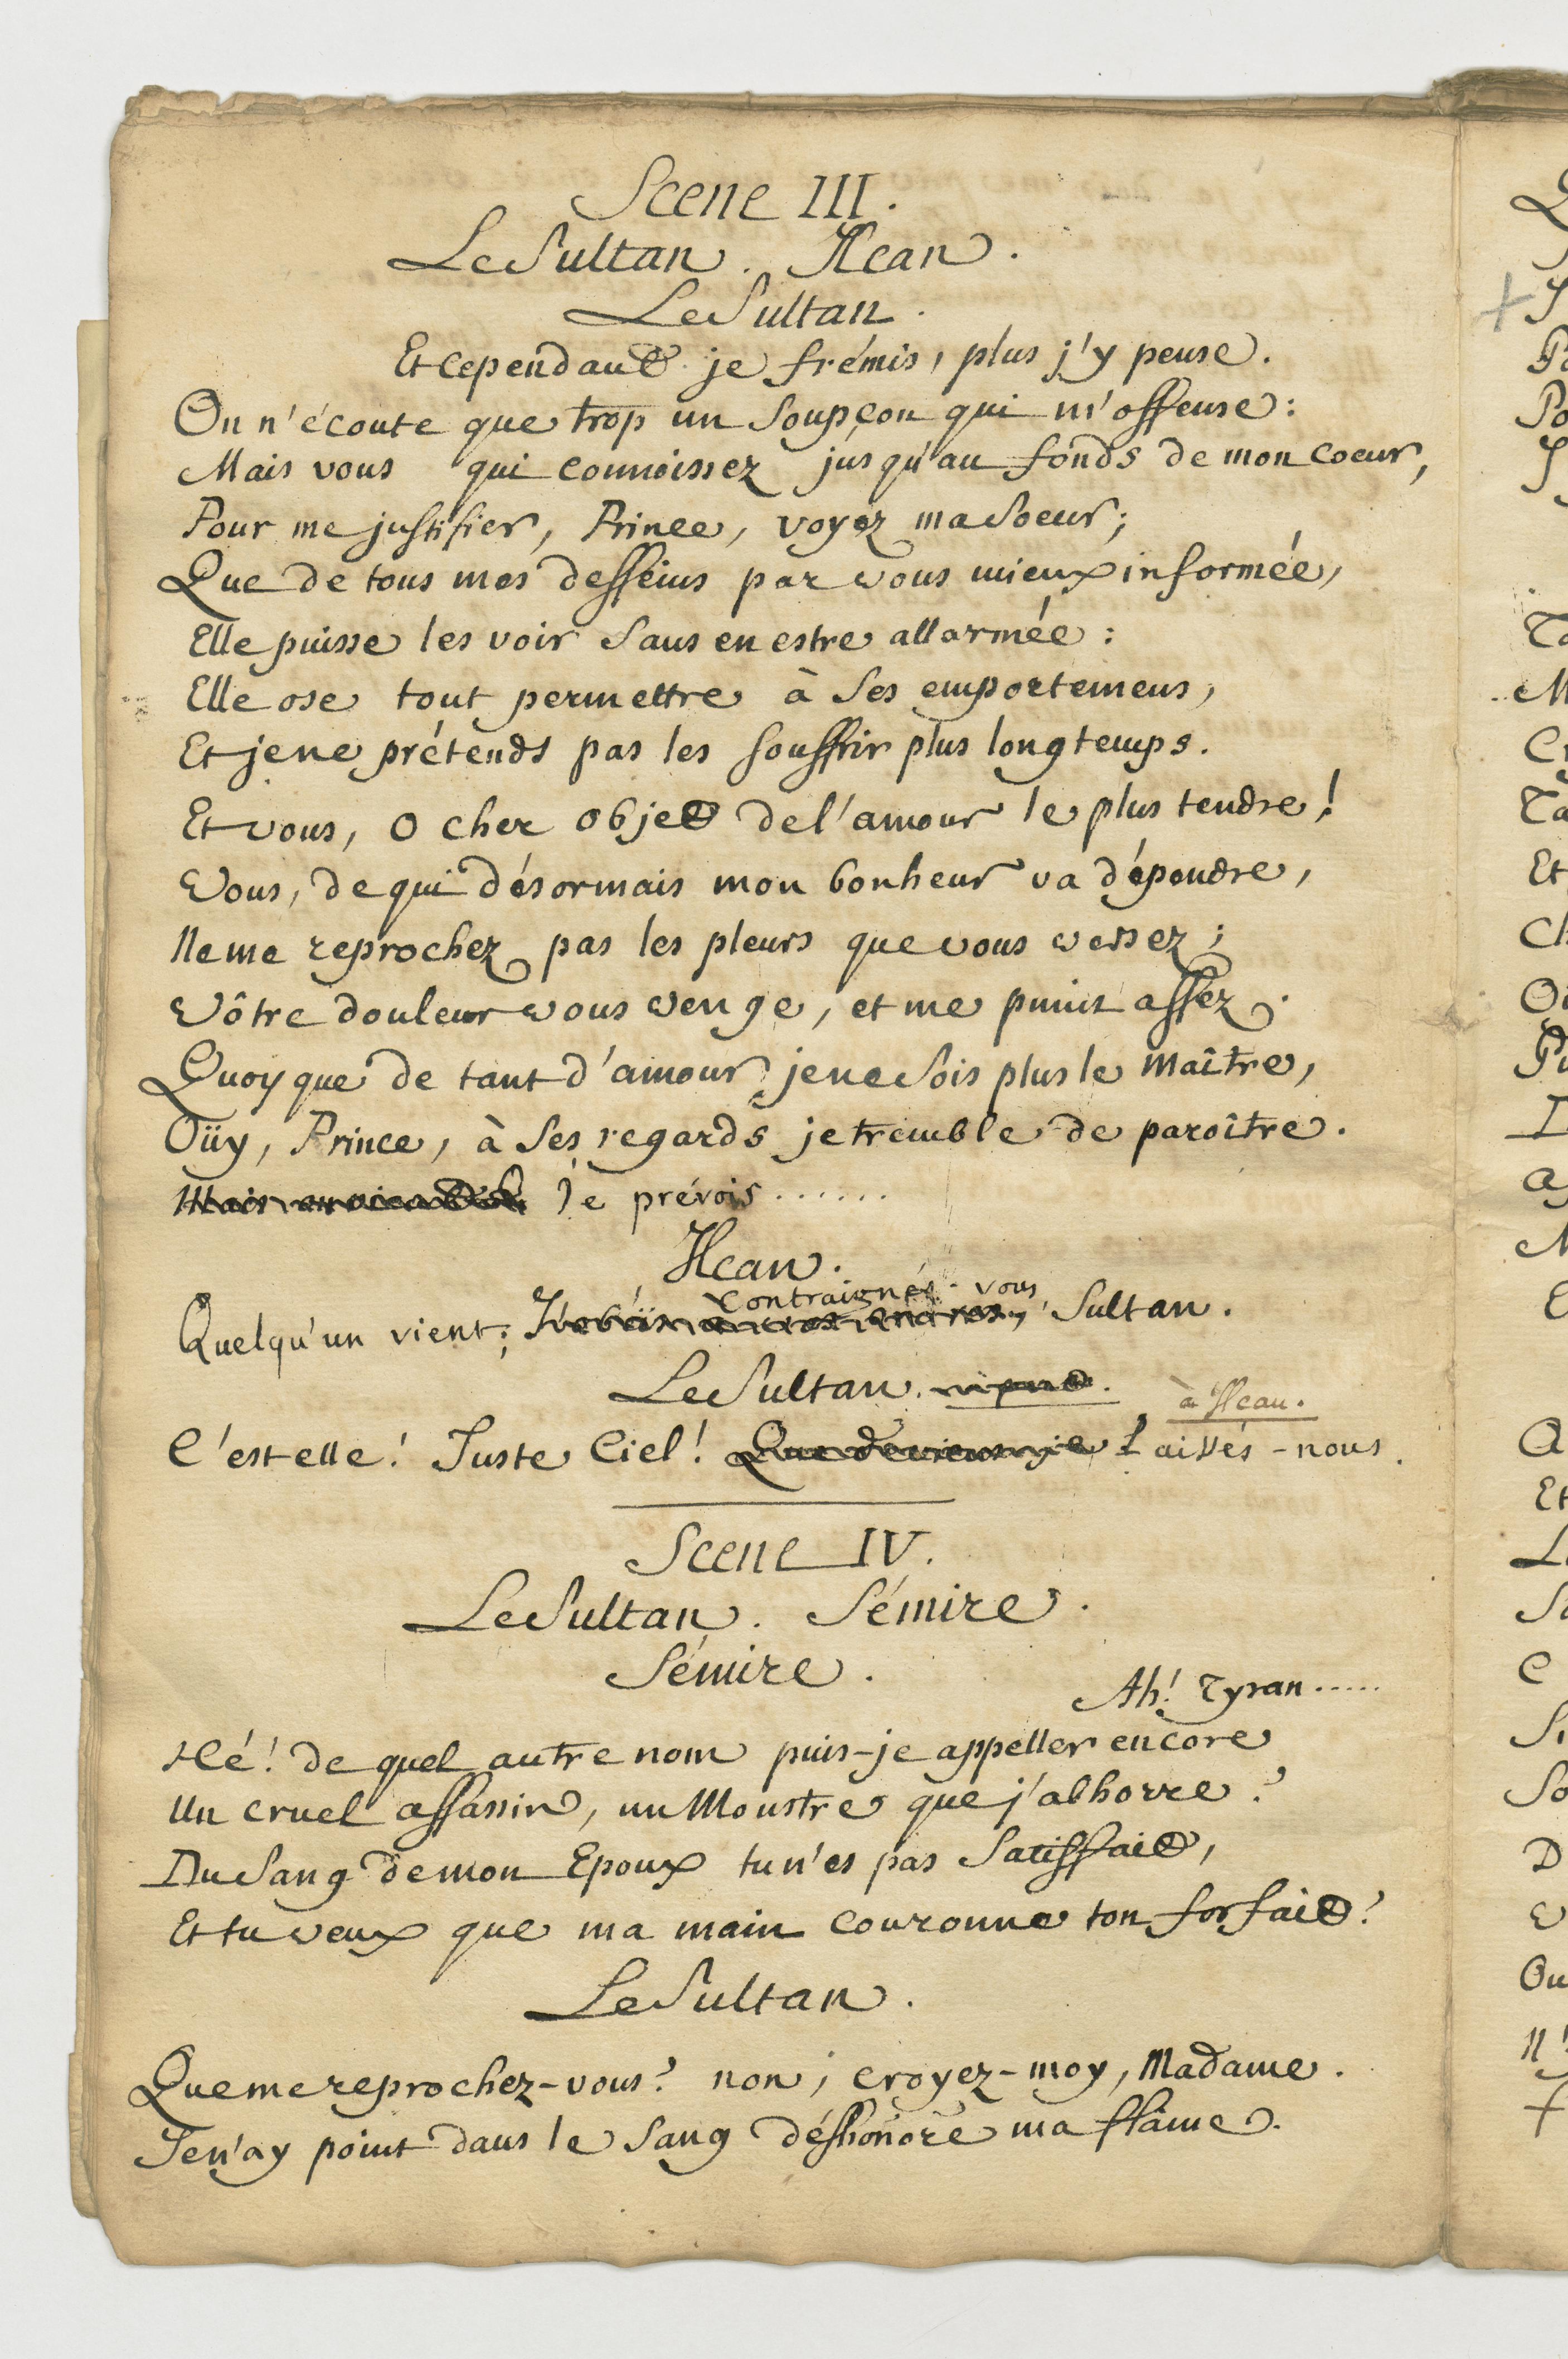 Scene III.
Le Sultan. Hcan.
Le Sultan.
Et cependant je frémis, plus j'y pense.
On n'écoute que trop un soupçon qui m'offense:
Mais vous qui connoissez jusqu'au fonds de mon coeur,
Pour me justifier, Prince, voyez ma soeur;
Que de tous mes desseins par vous mieux informée,
Elle puisse les voir sans en estre allarmée:
Elle ose tout permettre à ses emportemens,
Et je ne prétends pas les souffrir plus longtemps.
Et vous, o cher objet de l'amour le plus tendre!
Vous, de qui désormais mon bonheur va dépendre,
Ne me reprochez pas les pleurs que vous versez;
Vôtre douleur vous venge, et me punit assez.
Quoyque de tant d'amour je ne sois plus le maître,
Oüy, Prince, à ses regards je tremble de paroître.
Je prévois.......
Hcan.
contraignés-vous
Quelqu'un vient; Sultan.
Le Sultan.
à Hcan.
C'est elle! Juste Ciel! Laissés-nous.
Scene IV.
Le Sultan. Sémire.
Sémire.
Ah! Tyran.....
Hé! de quel autre nom puis-je appeller encore
Un cruel assassin, un Monstre que j'abhorre?
Du sang de mon Epoux tu n'es pas satisfait,
Et tu veux que ma main couronne ton forfait?
Le Sultan.
Que me reprochez-vous? non, croyez-moy, Madame.
Je n'ay point dans le sang déshonoré ma flâme.